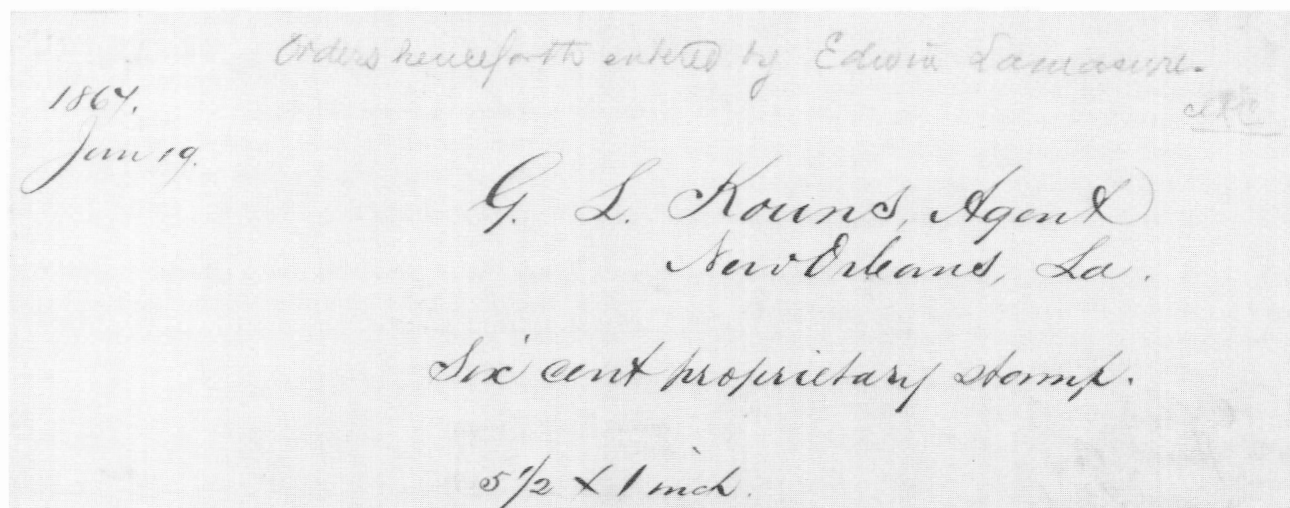 Orders henceforth entered by Edwin Lamasure.
1867.
Jun 19.
G. L. Kouns, Agent
New Orleans, La.
Six cent proprietary stamp.
5 1/2 X 1 inch.